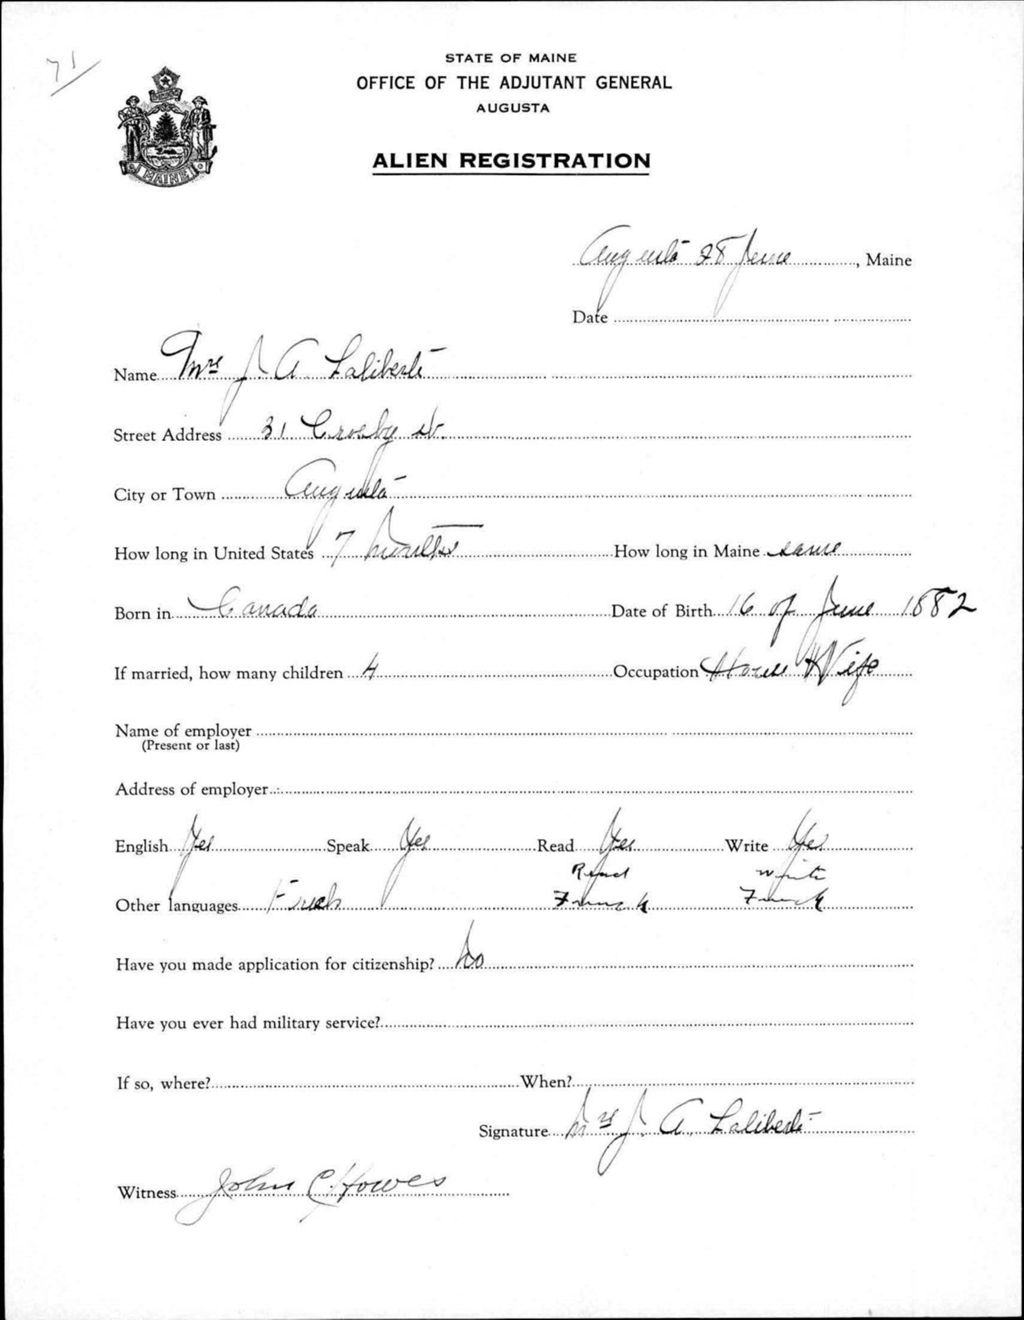 71
STATE OF MAINE
OFFICE OF THE ADJUTANT GENERAL
AUGUSTA
MAINE
ALIEN REGISTRATION
Augusta 28 June, Maine
Date
Name Mrs J. A. Laliberté
Street Address 31 Crosby St.
City or Town Augusta
How long in United States 7 Months How long in Maine same
Born in Canada Date of Birth 16 of June 1882
If married, how many children 4 Occupation House Wife
Name of employer
(Present or last)
Address of employer
English Yes Speak Yes Read Yes Write Yes
Read Write
Other languages French French French
Have you made application for citizenship? No
Have you ever had military service?
If so, where? When?
Signature Mrs J. A. Laliberté
Witness John C. Howes